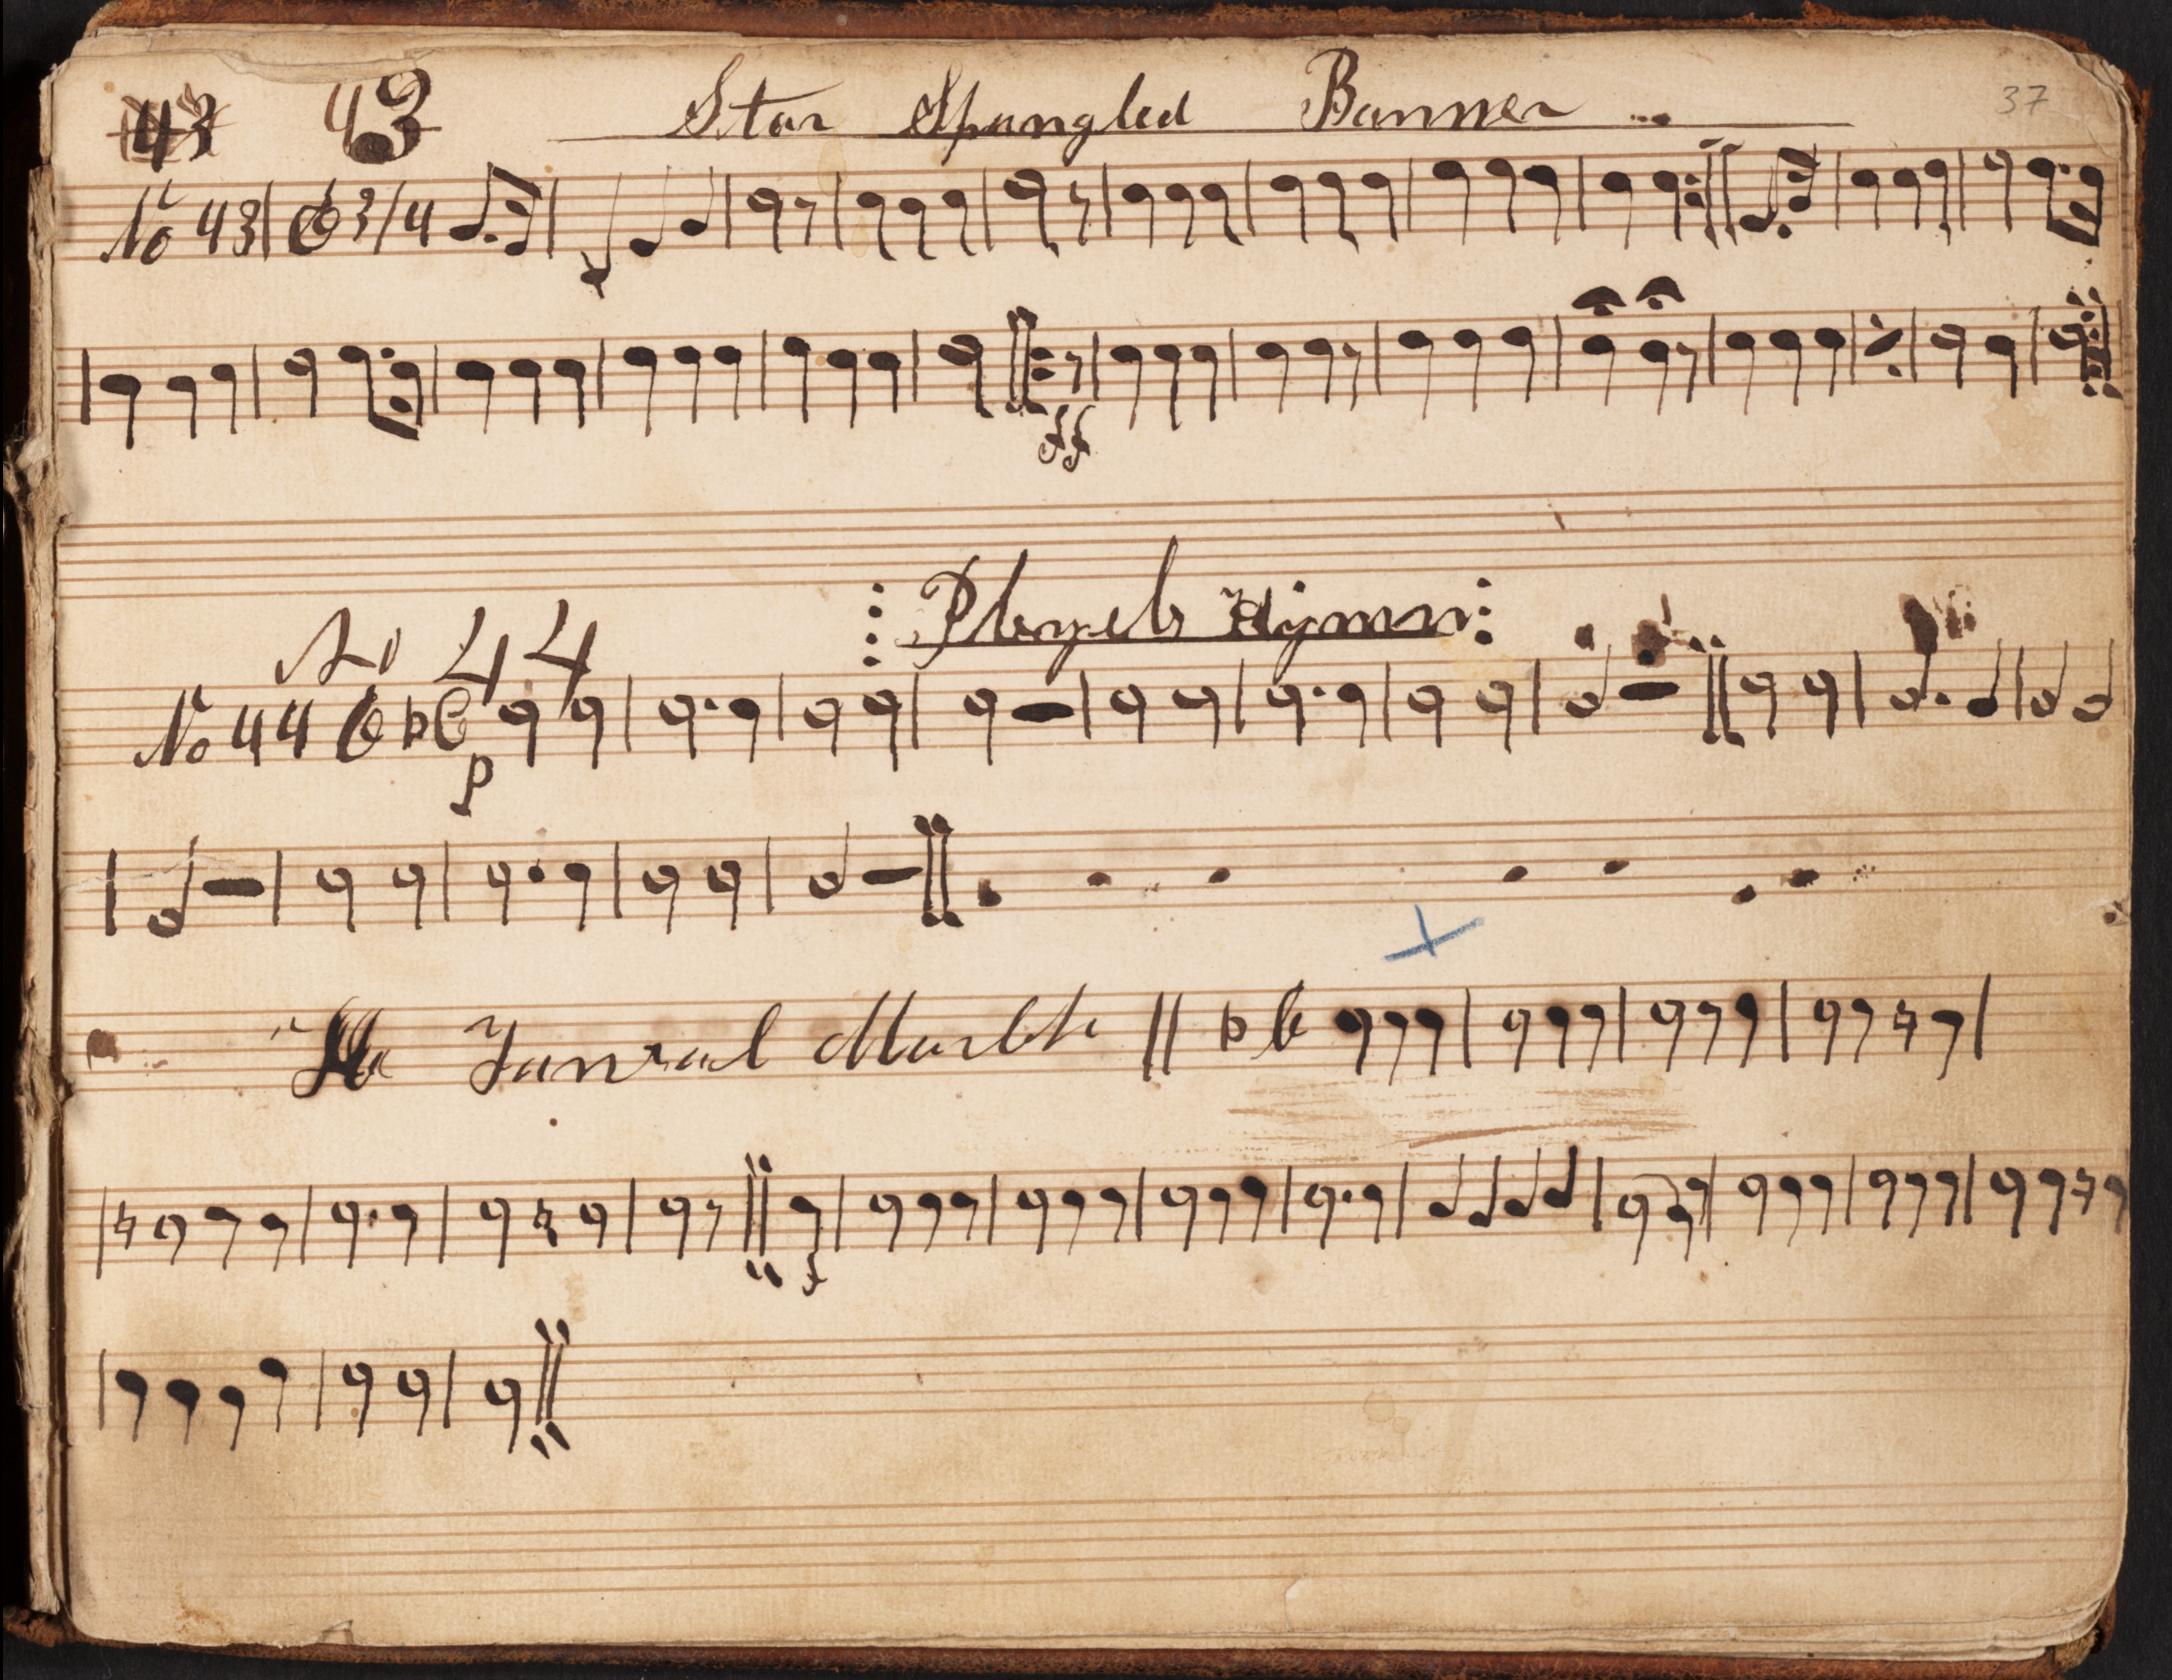 43 43 Star Spangled Banner 37
No 43 3/4
ff
Pleyels Hymn
No 44
No 44
p
Funral March
f